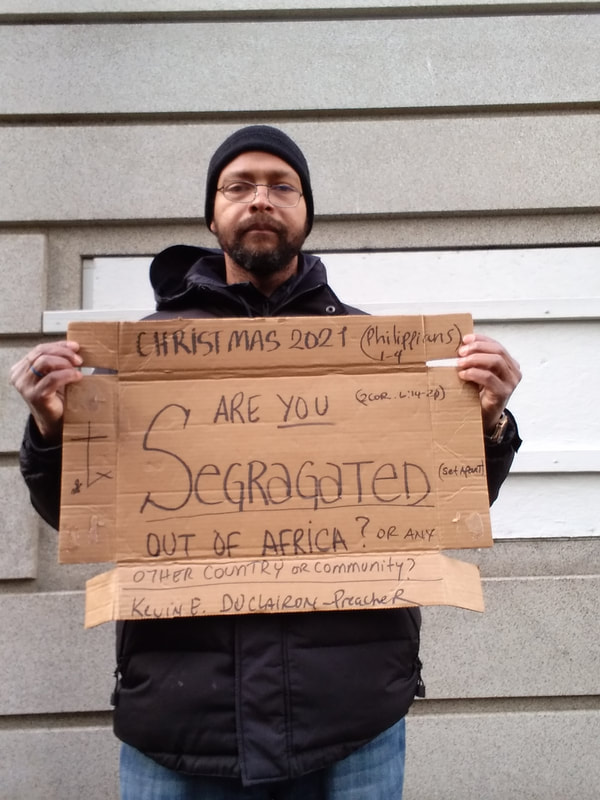 CHRISTMAS 2021 (Philippians)
1-4
ARE YOU (2COR. 6:14-
SEGRAGATED (Set Apart)
OUT OF AFRICA? OR ANY
OTHER COUNTRY OR Community?
KEVIN E. DUCLAIRON-Preacher